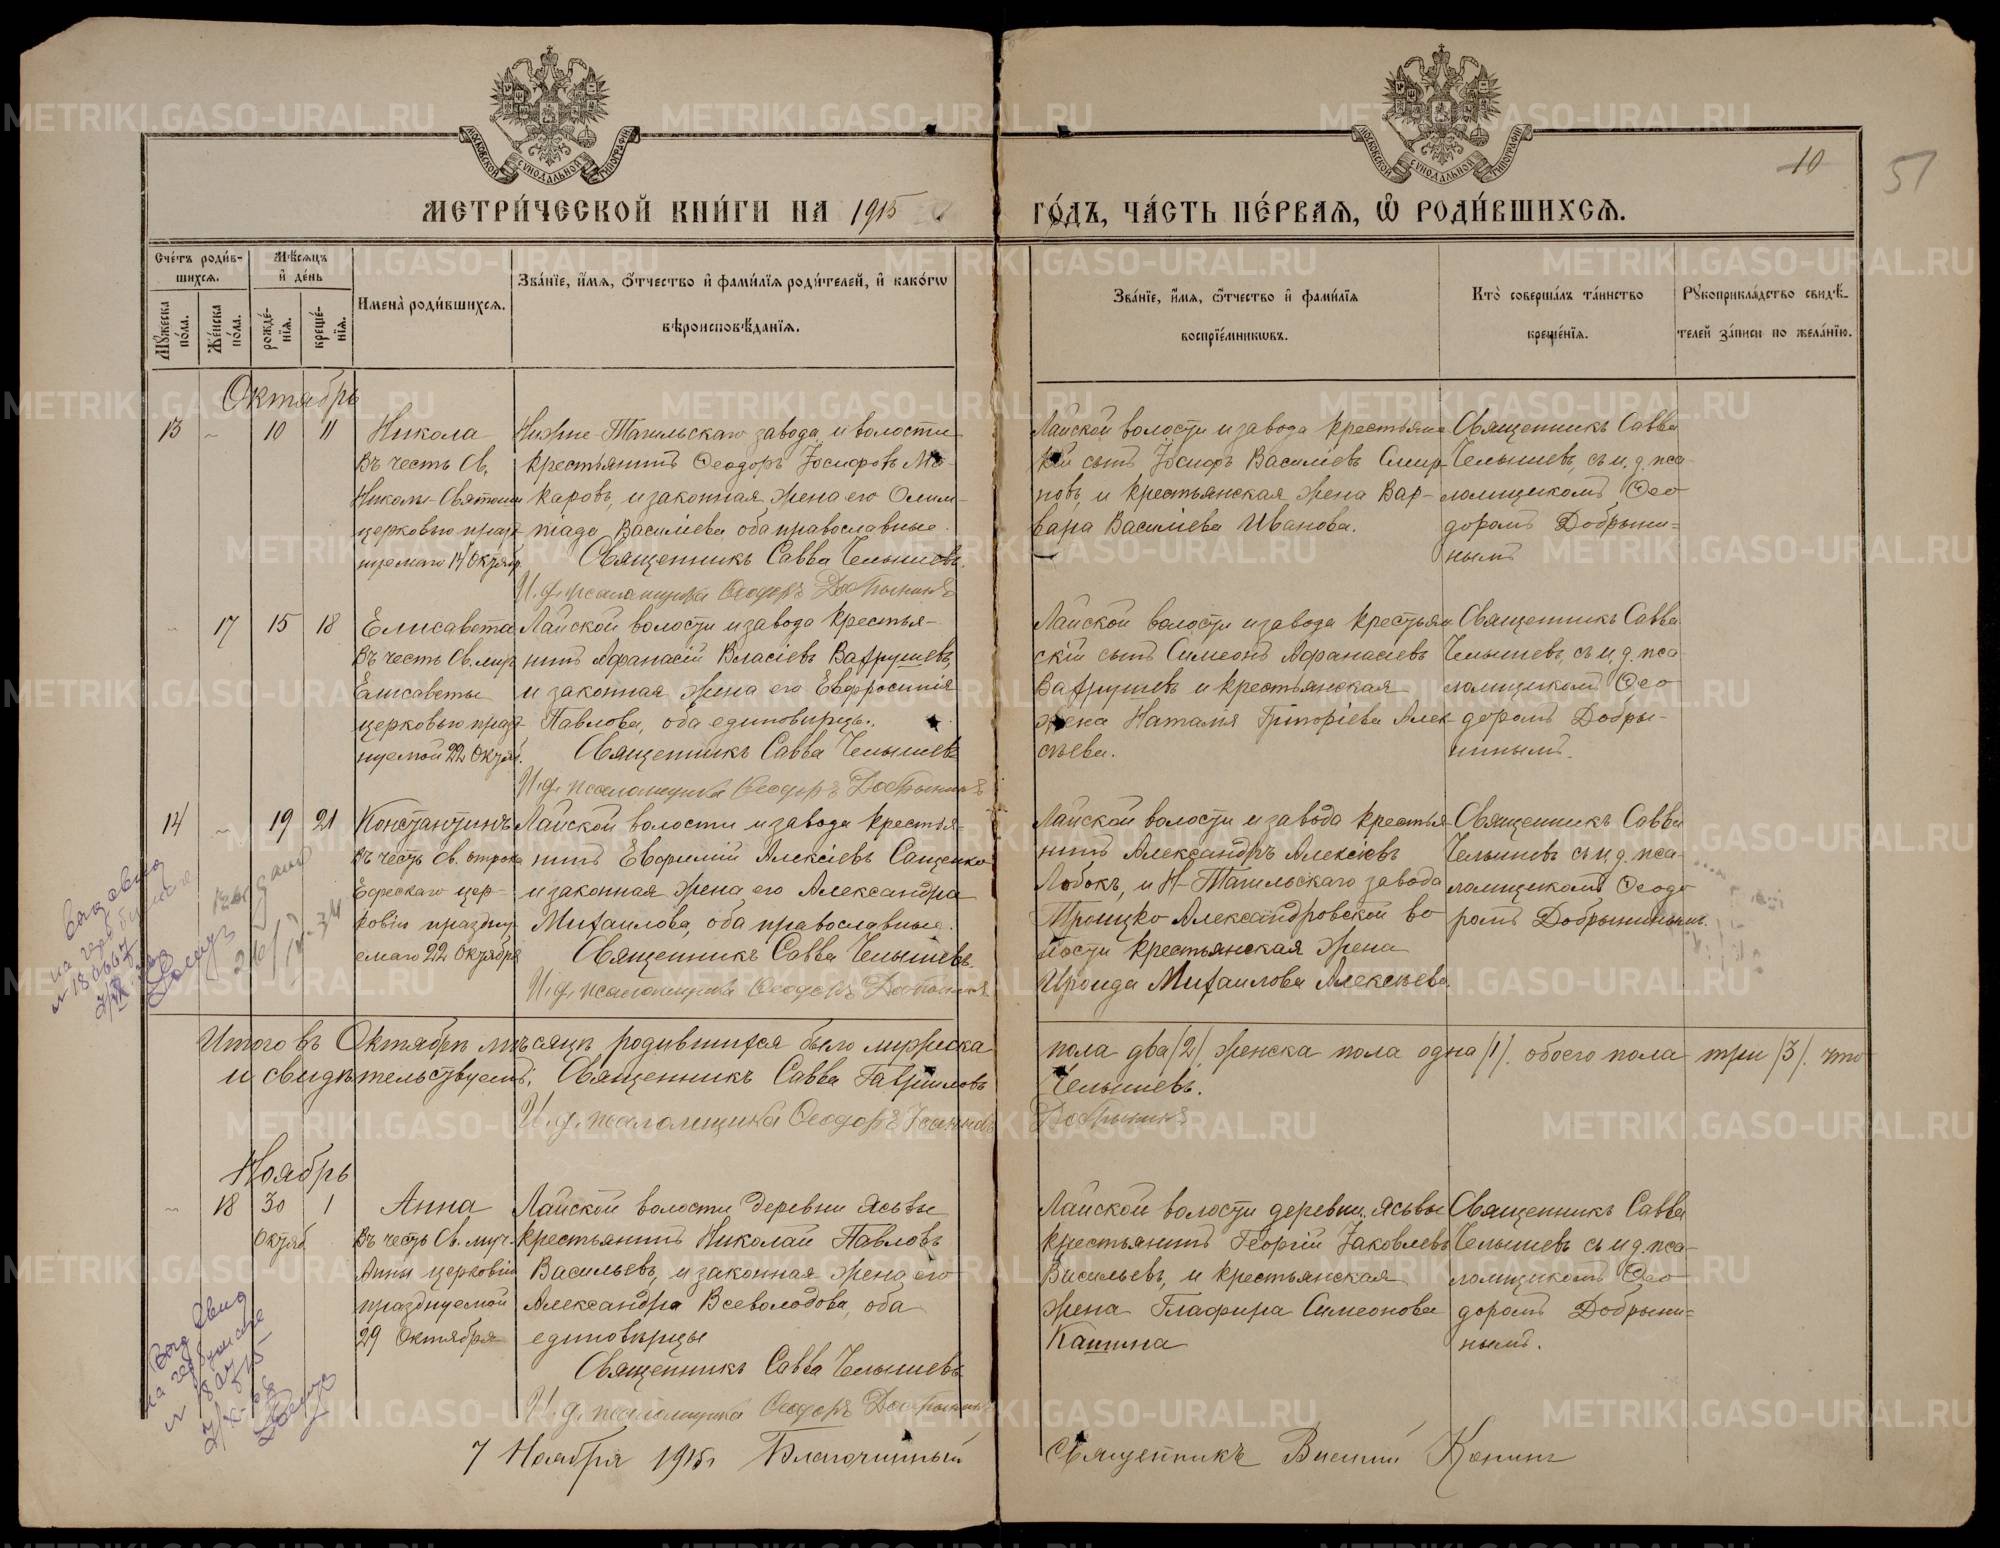 МЕТРИ́ЧЕСКОЙ КНИ́ГИ НА 1915
ГО́ДЪ, ЧА́СТЬ ПЕ́РВАѦ, Ѽ РОДИ́ВШИХСѦ.
10
51
Сче́тъ роди́в-
шихсѧ.
Мѣ́сѧцъ
и҆ де́нь
Мꙋжеска по́ла.
Же́нска по́ла.
рожде́-
нїѧ.
креще́-
нїѧ.
Имена̀ роди́вшихсѧ.
Зва́нїе, и҆́мѧ, ѻ҆́тчество и҆ фами́лїѧ роди́телей, и҆ како́гѡ
вѣроисповѣ́данїѧ.
Зва́нїе, и҆́мѧ, ѻ҆́тчество и҆ фами́лїѧ
воспрїе́мникѡвъ.
Кто̀ соверша́лъ та́инство
креще́нїѧ.
Рꙋкоприкла́дство свидѣ́-
телей за́писи по жела́нїю.
Октябрь
13 10 11
Никола
въ честь Св.
Николы Святоши
церковью празд-
нуемаго 14 Октяб.
Нижне-Тагильскаго завода и волости
крестьянинъ Ѳеодоръ Іосифовъ Ма-
каровъ, и законная жена его Олим-
піада Василіева оба православные.
Священникъ Савва Челышевъ.
И. д. псаломщика Ѳеодоръ Добрынинъ
Лайской волости и завода крестьян-
скій сынъ Іосифъ Василіевъ Смир-
новъ, и крестьянская жена Вар-
вара Василіева Иванова.
Священникъ Савва
Челышевъ, съ и. д. пса-
ломщикомъ Ѳео-
доромъ Добрыни=
нымъ
17 15 18
Елисавета
въ честь Св. муч.
Елисаветы
церковью празд-
нуемой 22 Октяб.
Лайской волости и завода крестья-
нинъ Афанасій Власіевъ Вахрушевъ,
и законная жена его Евфросинія
Павлова, оба единовѣрцы.
Священникъ Савва Челышевъ
И. д. псаломщика Ѳеодоръ Добрынинъ
Лайской волости и завода крестьян-
скій сынъ Симеонъ Афанасіевъ
Вахрушевъ и крестьянская
жена Наталья Григоріева Алек-
сѣева.
Священникъ Савва
Челышевъ, съ и. д. пса-
ломщикомъ Ѳео-
доромъ Добры-
нинымъ.
14 19 21
Константинъ
въ честь Св. отрока
Ефескаго цер-
ковію праздну-
емаго 22 Октября
Лайской волости и завода крестья-
нинъ Евфимій Алексіевъ Сащенко
и законная жена его Александра
Михаилова, оба православные.
Священникъ Савва Челышевъ.
И. д. псаломщика Ѳеодоръ Добрынинъ
Лайской волости и завода крестья-
нинъ Александръ Алексіевъ
Лобокъ, и Н-Тагильскаго завода
Троицко-Александровской во
лости крестьянская жена
Ираида Михаилова Алексѣева.
Священникъ Савва
Челышевъ съ и. д. пса-
ломщикомъ Ѳеодо
ромъ Добрынинымъ.
Итого въ Октябрѣ мѣсяцѣ родившихся было мужеска пола два /2/, женска пола одна /1/. обоего пола три /3/. что
и свидѣтельствуемъ: Священникъ Савва Гавриловъ Челышевъ.
И. д. псаломщика Ѳеодоръ Іоанновъ Добрынинъ
Ноябрь
18 30 1
Октяб
Анна
въ честь Св. муч.
Анны церковію
празднуемой
29 Октября
Лайской волости деревни Ясьвы
крестьянинъ Николай Павловъ
Васильевъ, и законная жена его
Александра Всеволодова, оба
единовѣрцы
Священникъ Савва Челышевъ
И. д. псаломщика Ѳеодоръ Добрынинъ
Лайской волости деревни Ясьвы
крестьянинъ Георгій Іаковлевъ
Васильевъ, и крестьянская
жена Глафира Симеонова
Кашина
Священникъ Савва
Челышевъ съ и. д. пса-
ломщикомъ Ѳео-
доромъ Добрыни=
нымъ.
7 Ноября 1915 г. Благочинный
Священникъ Василий